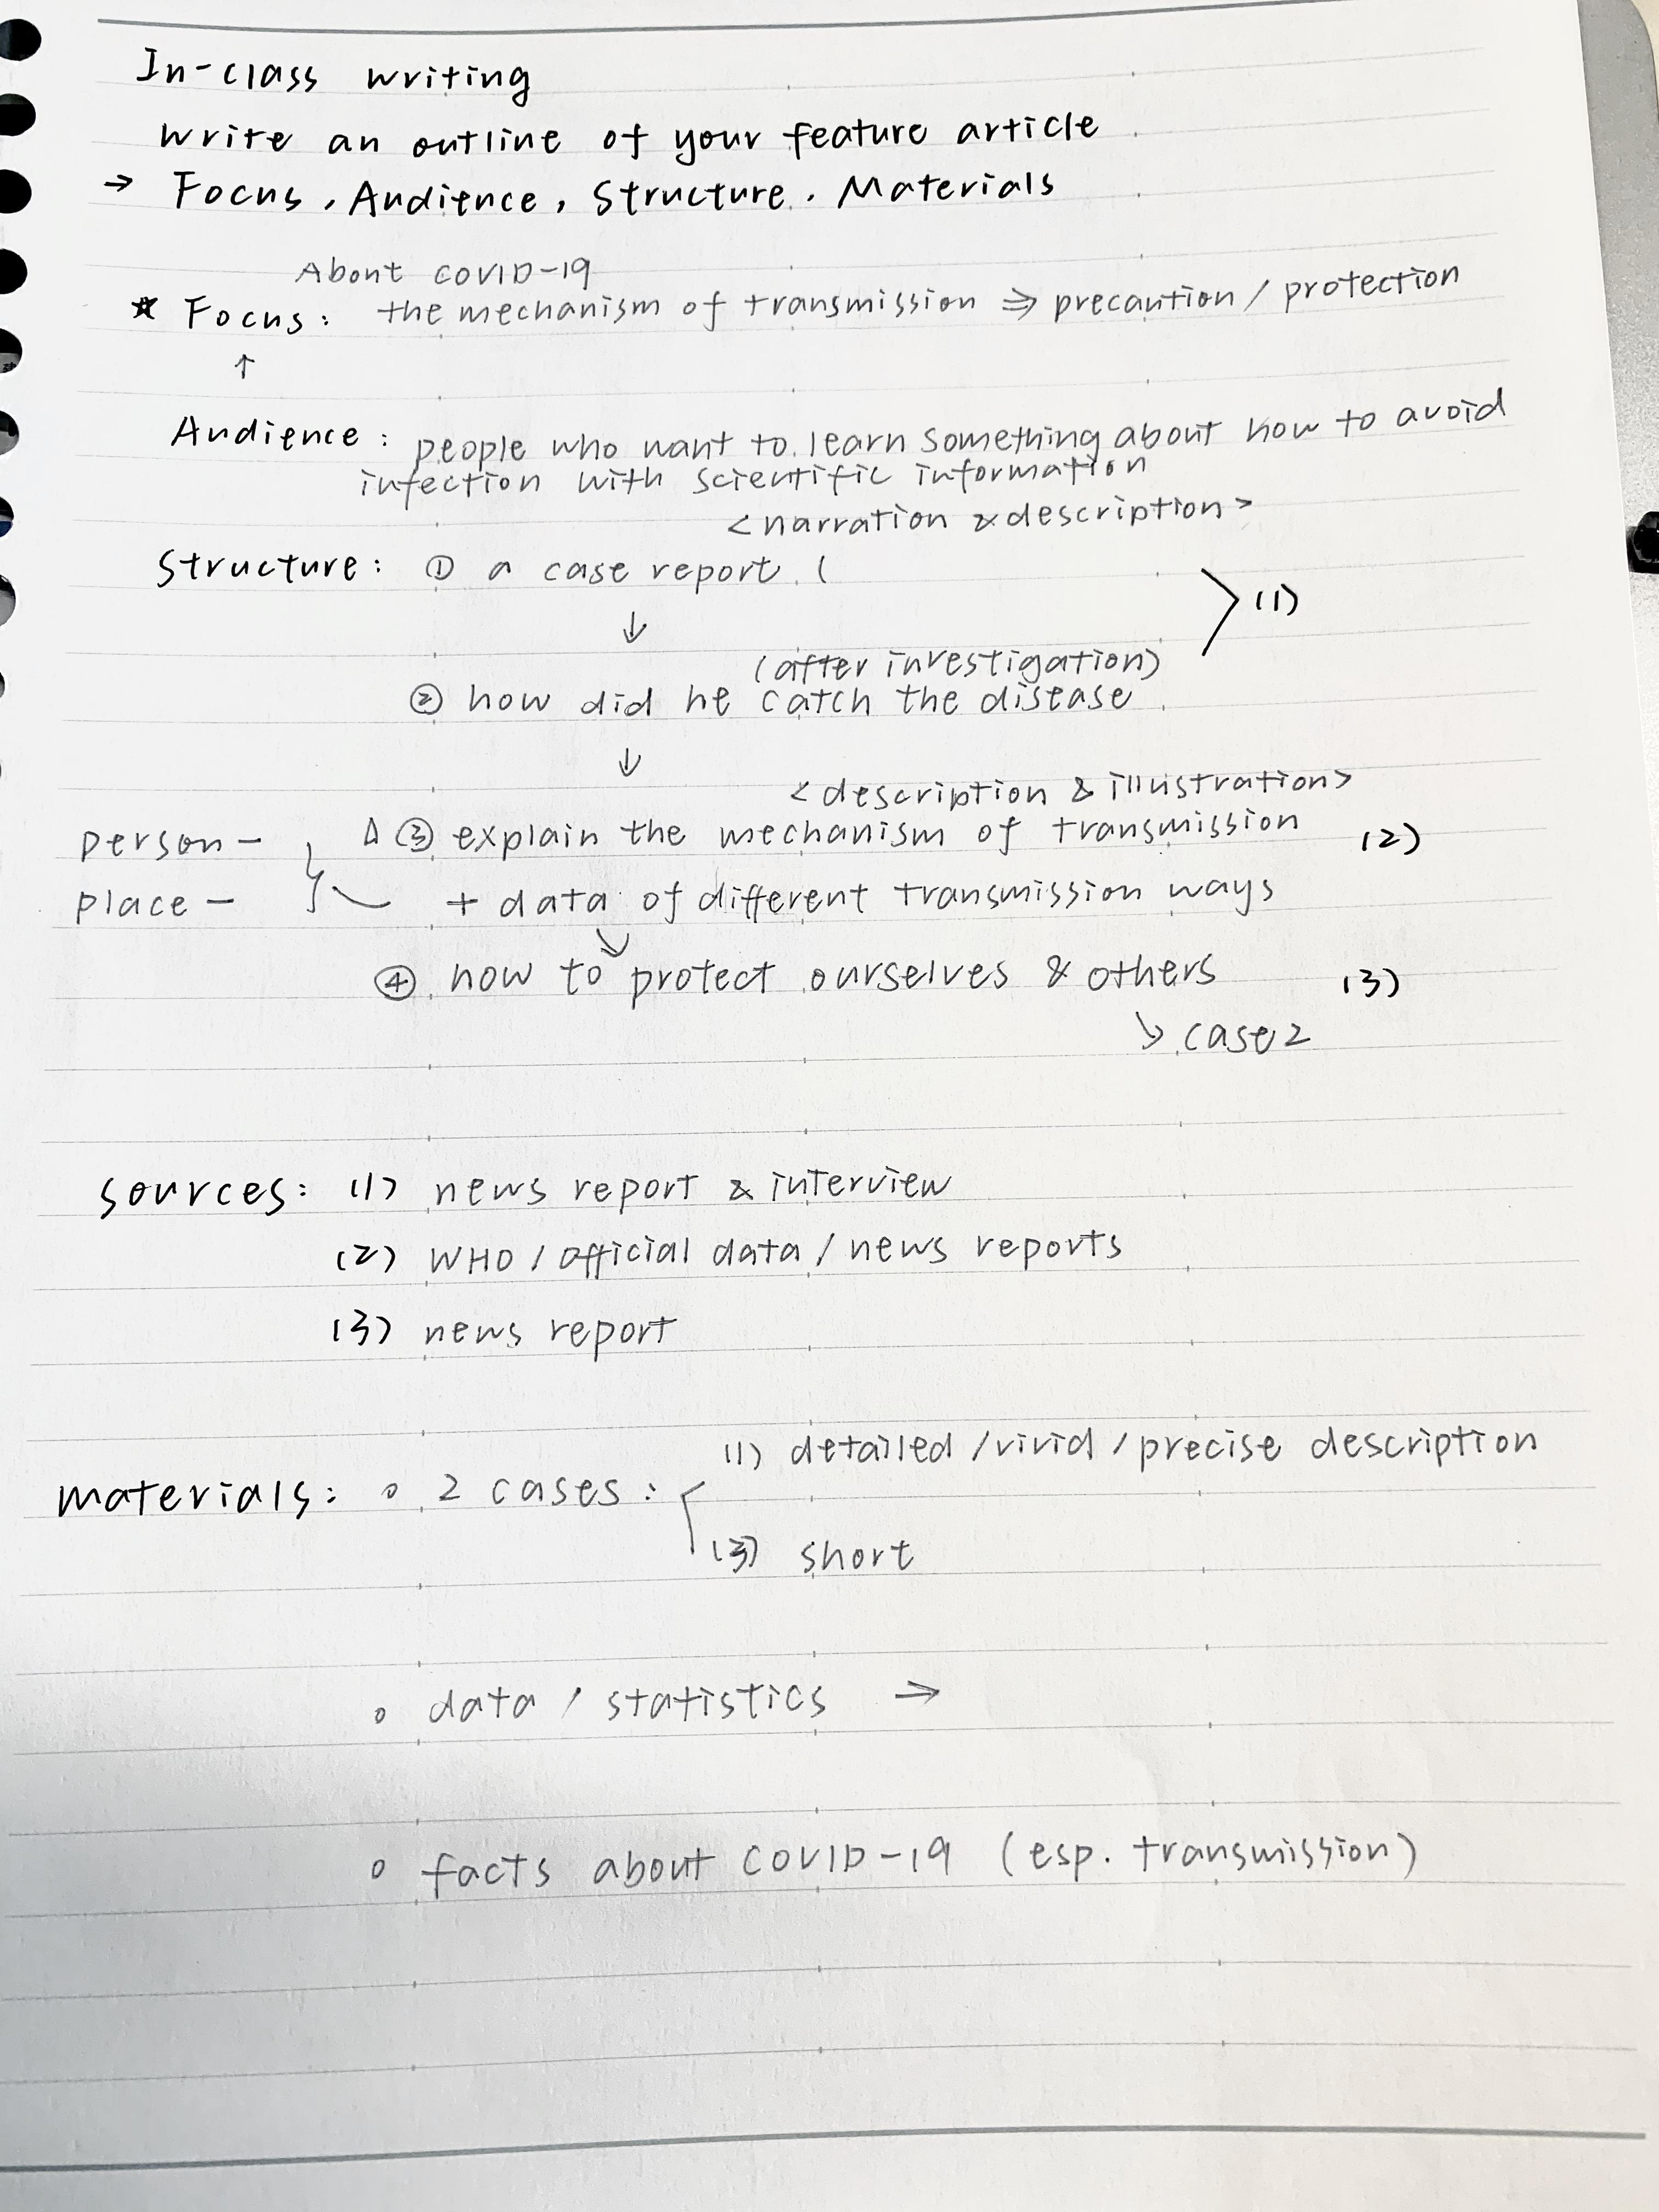 In-class writing
write an outline of your feature article
→ Focus, Audience, Structure, Materials
About COVID-19
★ Focus: the mechanism of transmission ⇒ precaution / protection
↑
Audience: people who want to learn something about how to avoid
infection with scientific information
<narration & description>
Structure: ① a case report (
↓ > (1)
(after investigation)
② how did he catch the disease
↓
<description & illustration>
person- Δ ③ explain the mechanism of transmission (2)
place- + data of different transmission ways
↘
④ how to protect ourselves & others (3)
↘ case 2
sources: (1) news report & interview
(2) WHO / official data / news reports
(3) news report
(1) detailed / vivid / precise description
materials: ◦ 2 cases:
(3) short
◦ data / statistics →
◦ facts about COVID-19 (esp. transmission)